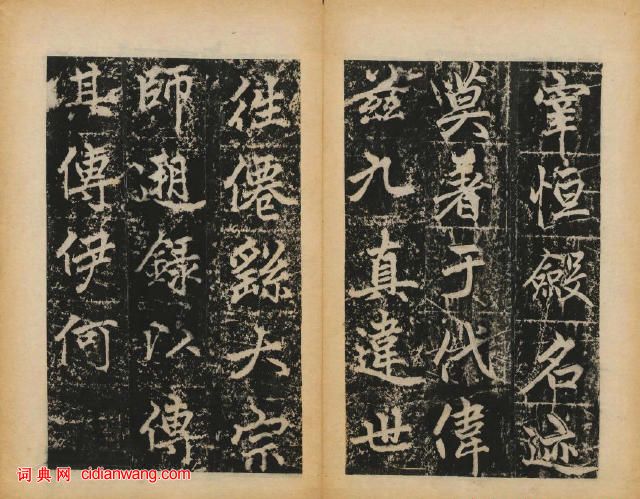 宰恒歛名迹
莫著于代偉
茲九真違世
往僊繇大宗
師遡錄以傳
其傳伊何
词典网 cidianwang.com